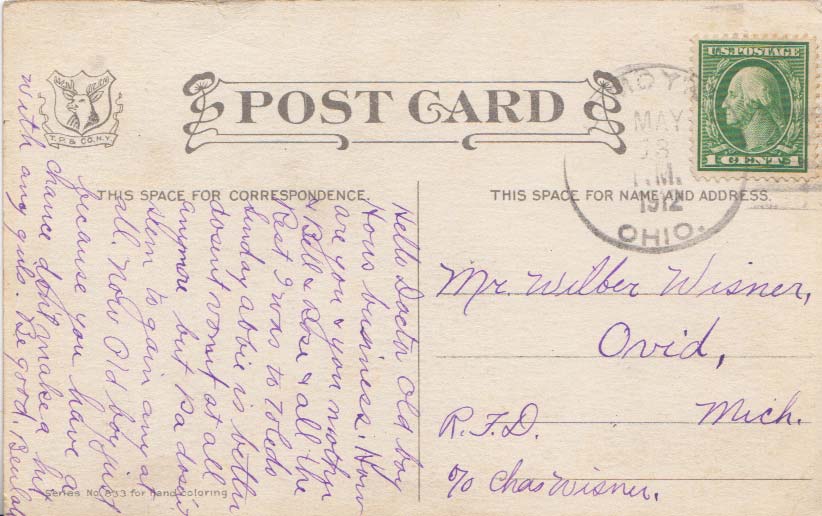 POST CARD
T. P. & CO. N.Y.
THIS SPACE FOR CORRESPONDENCE.
THIS SPACE FOR NAME AND ADDRESS.
U.S. POSTAGE
1 CENT 1
MAY
P.M.
1912
OHIO.
Hello Doctor Old boy
Hows business. How
are you & you mother
& Bell & Rose & all the
Rest I was to Toledo
Sunday abbie is better
dosent vomit at all
anymore but Pa dosn't
seem to gain any at
all. Now Old boy just
because you have a
chance dont make a hit
with any guls. Be good. Beulah
Mr. Wilber Wisner,
Ovid,
Mich.
R.F.D.
c/o Chas Wisner.
Series No. 833 for hand coloring